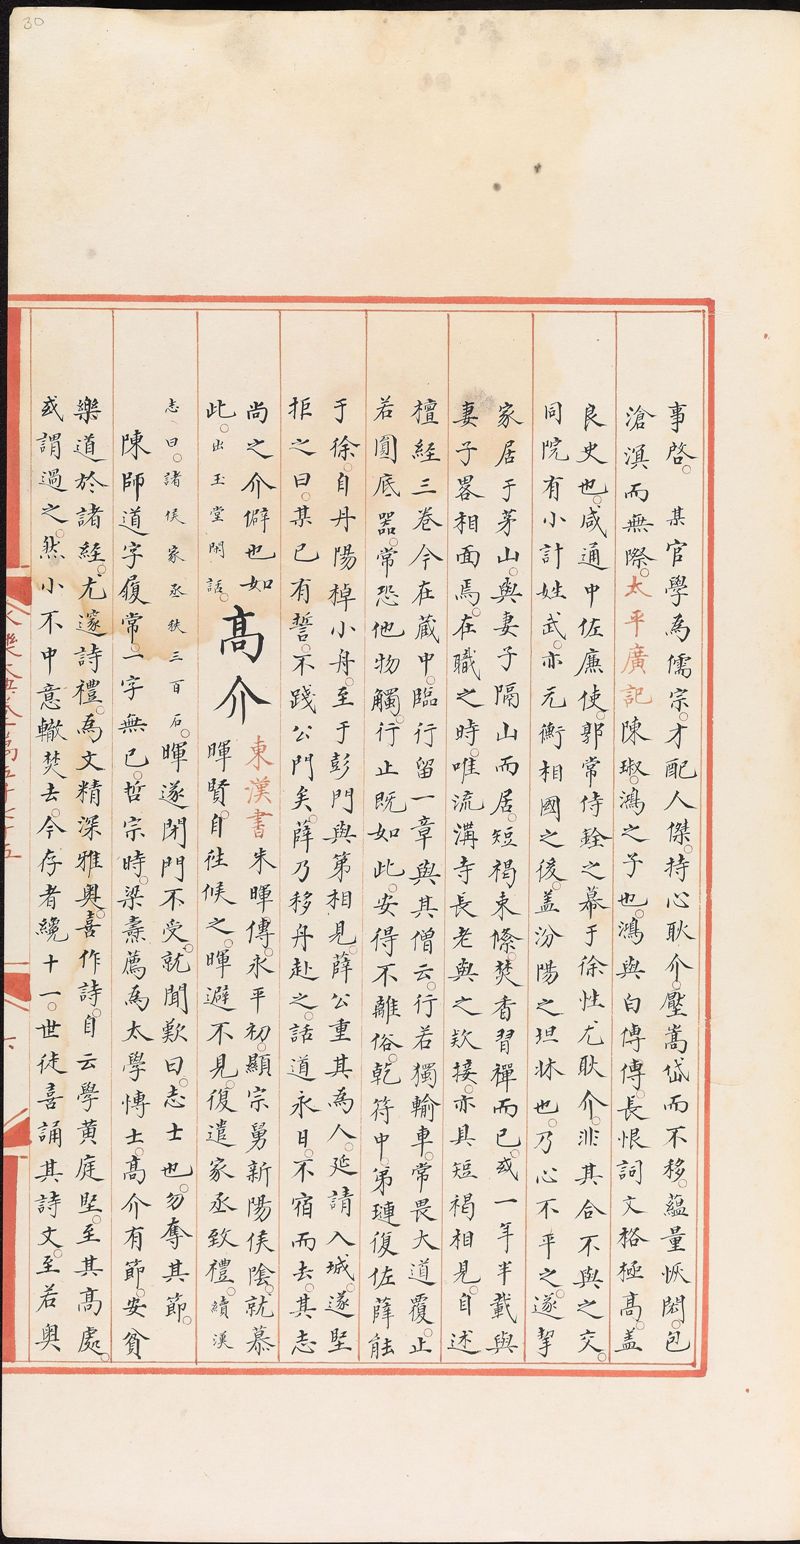 30
事啓。某官學為儒宗。才配人傑。持心耿介。壓嵩岱而不移。蘊量恢閎。包
滄溟而無際。太平廣記陳琡。鴻之子也。鴻與白傅傳。長恨詞文格極高。盖
良史也。咸通中佐廉使。郭常侍銓之幕于徐性尤耿介。非其合不與之交。
同院有小計姓武。亦元衡相國之後。盖汾陽之坦牀也。乃心不平之。遂挈
家居于茅山。與妻子隔山而居。短褐束絛。焚香習禪而已。或一年半載與
妻子畧相面焉。在職之時。唯流溝寺長老與之欵接。亦具短褐相見。自述
檀經三卷今在藏中。臨行留一章與其僧云。行若獨輪車。常畏大道覆。止
若圓底噐。常恐他物觸。行止既如此。安得不離俗。乾符中。弟璉復佐薛能
于徐。自丹陽棹小舟。至于彭門與第相見。薛公重其為人。延請入城。遂堅
拒之曰。某已有誓。不踐公門矣。薛乃移舟赴之。話道永日。不宿而去。其志
尚之介僻也如此。出玉堂閒話。
髙介
東漢書朱暉傳。永平初。顯宗舅新陽侯陰。就慕
暉賢。自往候之。暉避不見。復遣家丞致禮。續漢
志曰。諸侯家丞秩三百石。暉遂閉門不受。就聞歎曰。志士也。勿奪其節。
陳師道字履常。一字無已。哲宗時。梁燾薦為太學愽士。髙介有節。安貧
樂道於諸經。尤邃詩禮。為文精深雅奥。喜作詩。自云學黄庭堅。至其髙處。
或謂過之。然小不中意輙焚去。今存者纔十一。世徒喜誦其詩文。至若奥
永樂大典卷一萬五千七十五
六